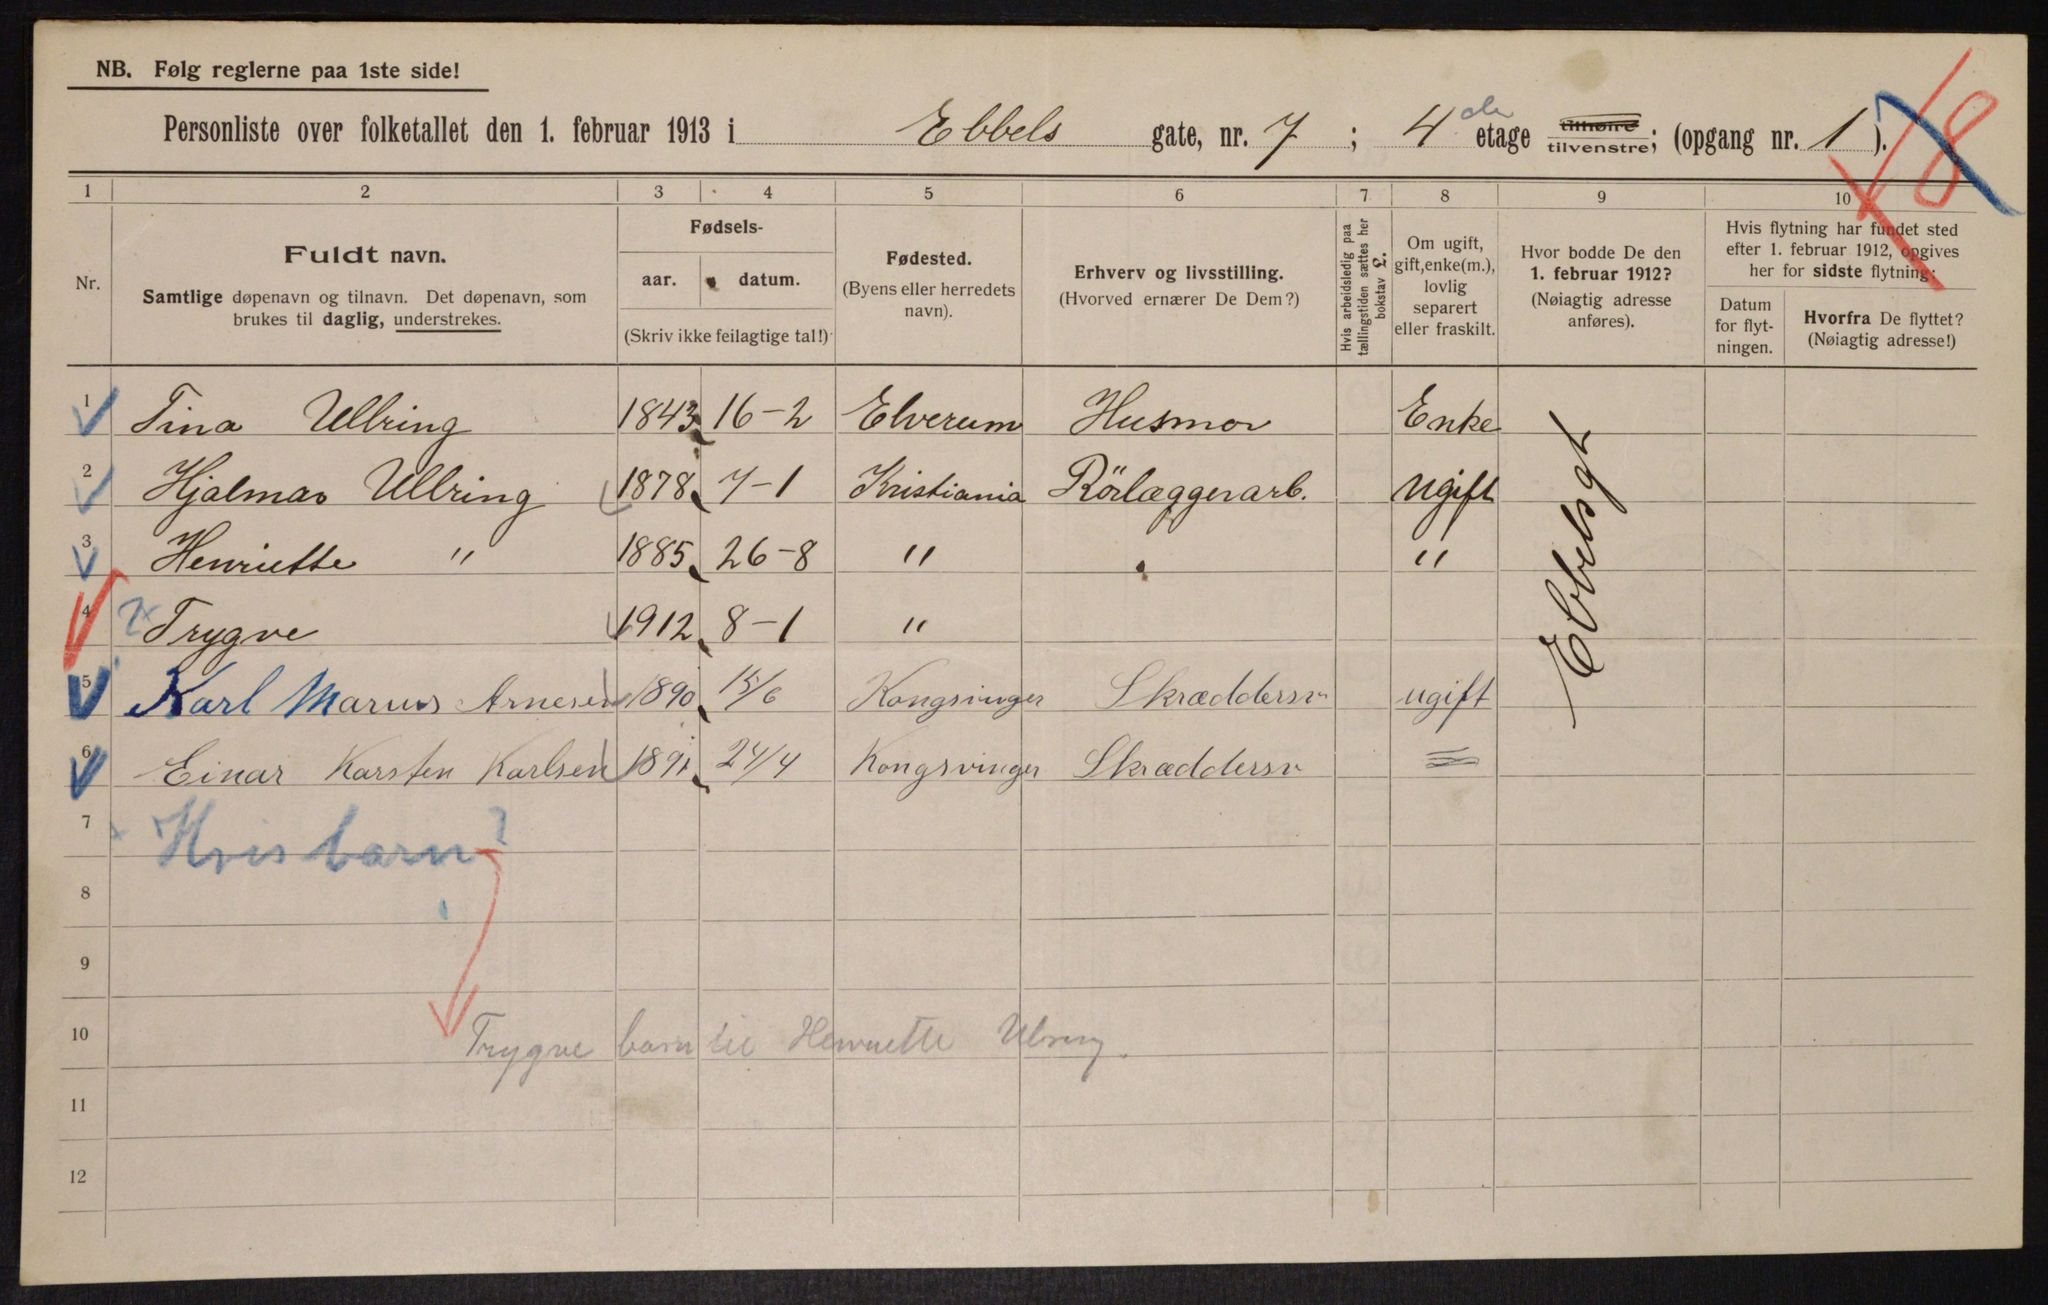 NB. Følg reglerne paa 1ste side!
Personliste over folketallet den 1. februar 1913 i Ebbels gate, nr. 7 ; 4de etage tilhøire tilvenstre; (opgang nr. 1 ).
18
1 2 3 4 5 6 7 8 9 10
Nr.
Fuldt navn.
Samtlige døpenavn og tilnavn. Det døpenavn, som
brukes til daglig, understrekes.
Fødsels-
aar. datum.
(Skriv ikke feilagtige tal!)
Fødested.
(Byens eller herredets
navn).
Erhverv og livsstilling.
(Hvorved ernærer De Dem?)
Hvis arbeidsledig paa
tællingstiden sættes her
bokstav L.
Om ugift,
gift, enke(m.),
lovlig
separert
eller fraskilt.
Hvor bodde De den
1. februar 1912?
(Nøiagtig adresse
anføres).
Hvis flytning har fundet sted
efter 1. februar 1912, opgives
her for sidste flytning:
Datum
for flyt-
ningen.
Hvorfra De flyttet?
(Nøiagtig adresse!)
1 Tina Ullring 1843 16-2 Elverum Husmor Enke
2 Hjalmar Ullring 1878 7-1 Kristiania Rörlæggerarb. ugift
3 Henriette " 1885 26-8 " "
4 Trygve 1912 8-1 "
5 Karl Marius Arnesen 1890 15/6 Kongsvinger Skræddersv ugift
6 Einar Karsten Karlsen 1891 24/4 Kongsvinger Skræddersv =
Ebbelsgt
7 Hvis barn?
8
9
10 Trygve barn til Henriette Ulring.
11
12